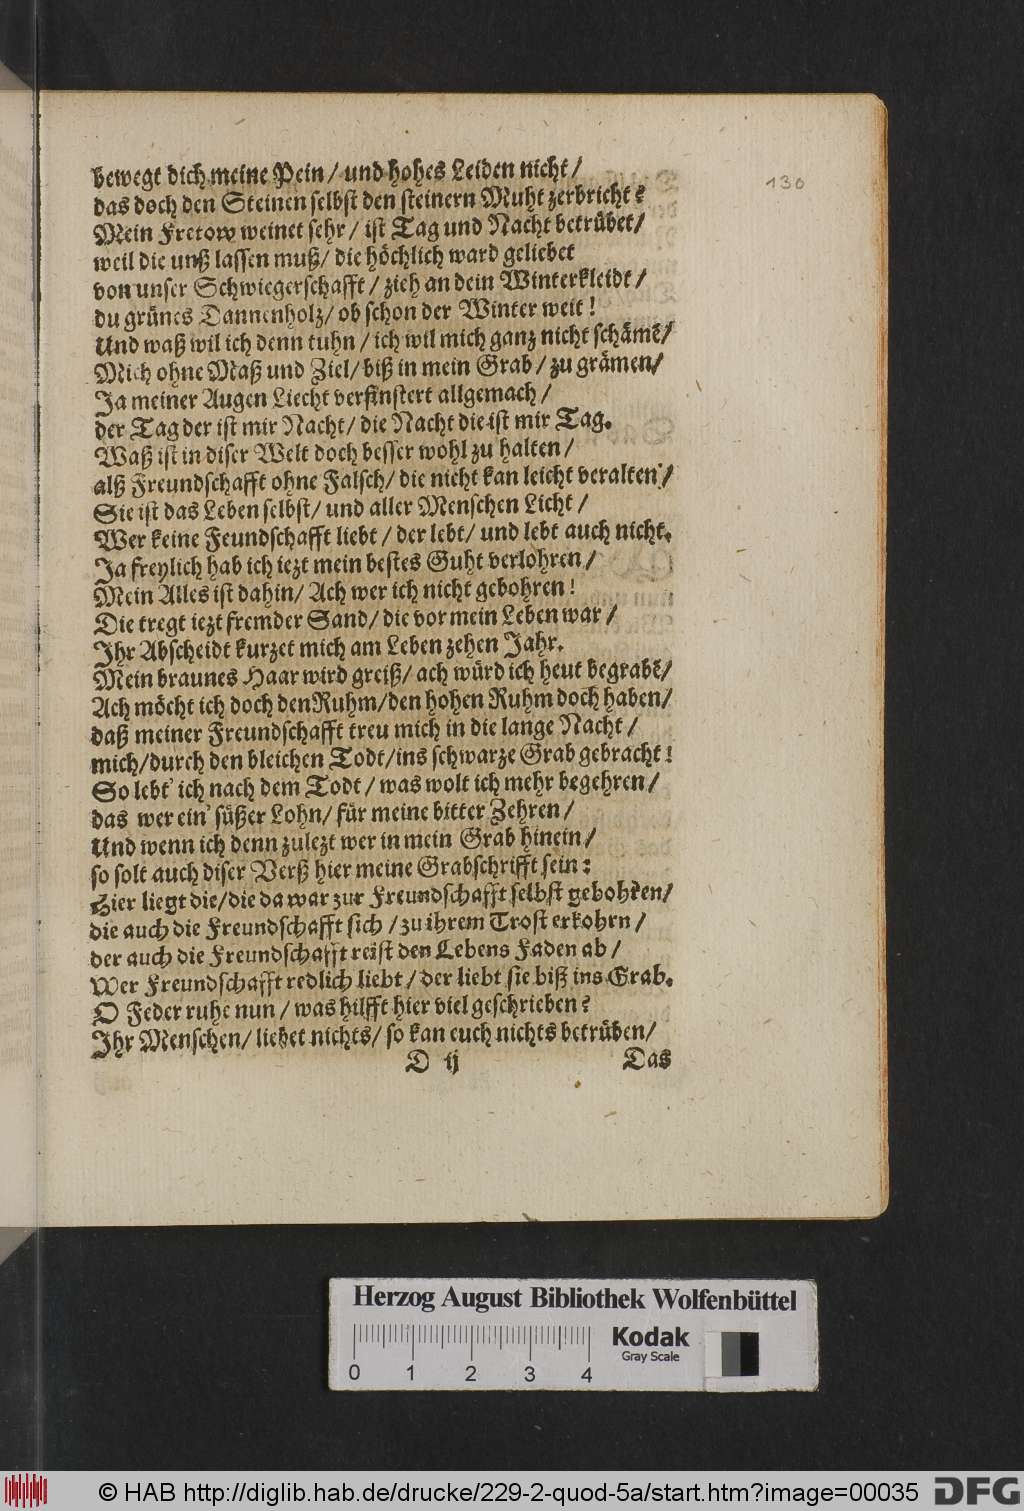 130
bewegt dich meine Pein / und hohes Leiden nicht /
das doch den Steinen selbst den steinern Muht zerbricht?
Mein Fretow weinet sehr / ist Tag und Nacht betrübet/
weil die unß lassen muß/ die höchlich ward geliebet
von unser Schwiegerschafft / zieh an dein Winterkleidt /
du grünes Dannenholz/ ob schon der Winter weit !
Und waß wil ich denn tuhn / ich wil mich ganz nicht schämẽ/
Mich ohne Maß und Ziel/ biß in mein Grab / zu grämen/
Ja meiner Augen Liecht verfinstert allgemach /
der Tag der ist mir Nacht/ die Nacht die ist mir Tag.
Waß ist in diser Welt doch besser wohl zu halten /
alß Freundschafft ohne Falsch/ die nicht kan leicht veralten /
Sie ist das Leben selbst/ und aller Menschen Licht /
Wer keine Feundschafft liebt / der lebt/ und lebt auch nicht.
Ja freylich hab ich iezt mein bestes Guht verlohren /
Mein Alles ist dahin/ Ach wer ich nicht gebohren !
Die tregt iezt fremder Sand/ die vor mein Leben war /
Ihr Abscheidt kurzet mich am Leben zehen Jahr.
Mein braunes Haar wird greiß/ ach würd ich heut begrabẽ/
Ach möcht ich doch den Ruhm/den hohen Ruhm doch haben/
daß meiner Freundschafft treu mich in die lange Nacht /
mich/durch den bleichen Todt/ins schwarze Grab gebracht !
So lebt' ich nach dem Todt / was wolt ich mehr begehren /
das wer ein' süßer Lohn/ für meine bitter Zehren /
Und wenn ich denn zulezt wer in mein Grab hinein /
so solt auch diser Verß hier meine Grabschrifft sein :
Hier liegt die/die da war zur Freundschafft selbst gebohren/
die auch die Freundschafft sich / zu ihrem Trost erkohrn /
der auch die Freundschafft reist den Lebens Faden ab /
Wer Freundschafft redlich liebt / der liebt sie biß ins Grab.
O Feder ruhe nun / was hilfft hier viel geschrieben ?
Ihr Menschen/ liebet nichts/ so kan euch nichts betrüben/
D ij Das
Herzog August Bibliothek Wolfenbüttel
0 1 2 3 4
Kodak
Gray Scale
© HAB http://diglib.hab.de/drucke/229-2-quod-5a/start.htm?image=00035
DFG